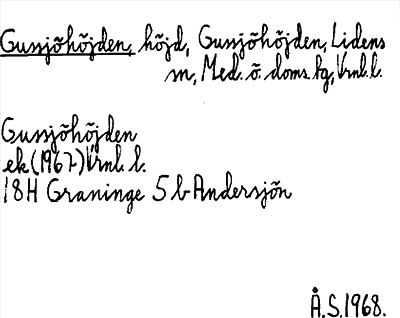 Gussjöhöjden, höjd, Gussjöhöjden, Lidens
sn, Med. ö. doms. fg, Vrnl. l.
Gussjöhöjden
ek (1967) Vrnl. l.
18H Graninge 5 b Andersjön
Å.S. 1968.